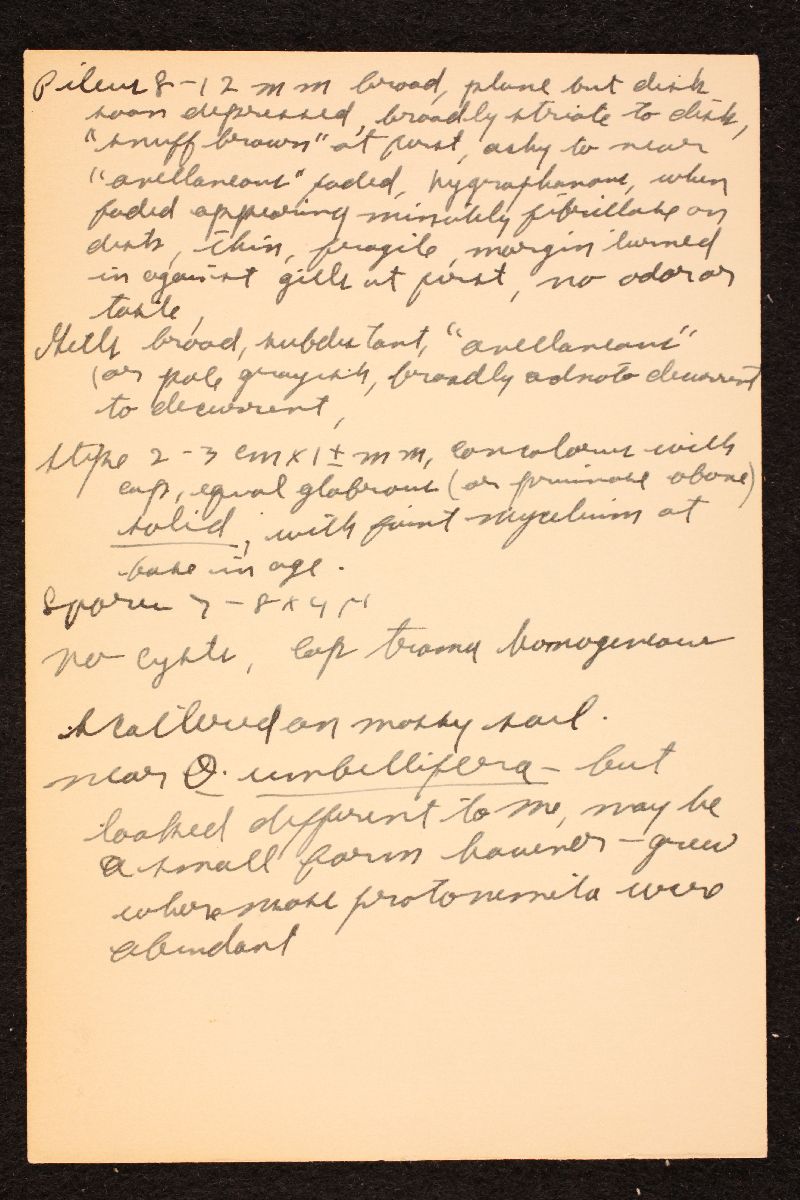 Pileus 8-12 mm broad, plane but disk
soon depressed, broadly striate to disk,
"snuff brown" at first, ashy to near
"avellaneous" faded, hygrophanous, when
faded appearing minutely fibrillose on
disk, thin, fragile, margin turned
in against gills at first, no odor or
taste,
Gills broad, subdistant, "avellaneous"
(or pale grayish, broadly adnato decurrent
to decurrent,
Stipe 2-3 cm x 1± mm, concolorus with
cap, equal glabrous (or pruinose above)
solid, with faint mycelium at
base in age.
Spores 7-8 x 4 μ
no cysts, Cap trama homogeneous
scattered on mossy soil.
near O. umbellifera - but
looked different to me, may be
a small form however - grew
where moss protonemita were
abundant